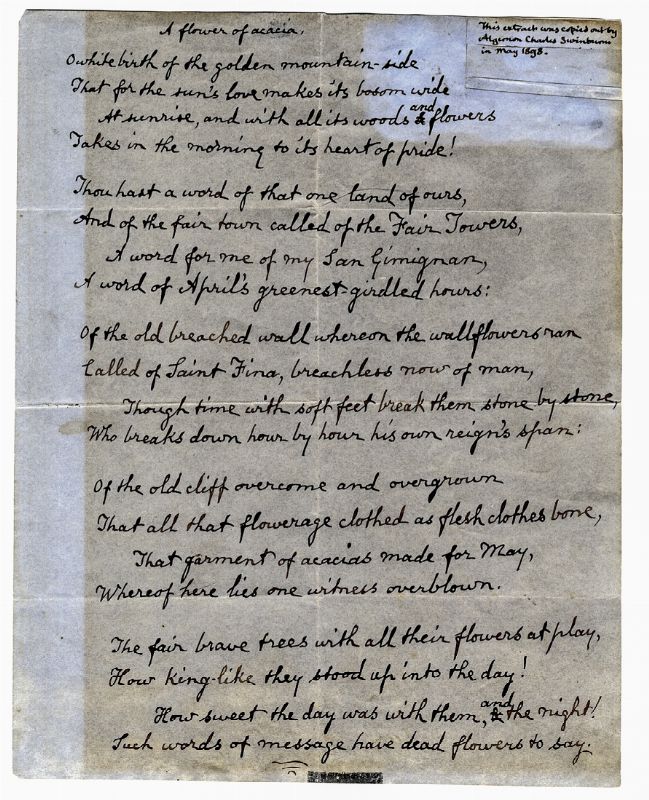 A flower of acacia.
This extract was copied out by
Algernon Charles Swinburne
in May 1898.
O white birth of the golden mountain-side
That for the sun's love makes its bosom wide
At sunrise, and with all its woods and flowers
Takes in the morning to its heart of pride!
Thou hast a word of that one land of ours,
And of the fair town called of the Fair Towers,
A word for me of my San Gimignan,
A word of April's greenest-girdled hours:
Of the old breached wall whereon the wallflowers ran
Called of Saint Fina, breachless now of man,
Though time with soft feet break them stone by stone,
Who breaks down hour by hour his own reign's span:
Of the old cliff overcome and overgrown
That all that flowerage clothed as flesh clothes bone,
That garment of acacias made for May,
Whereof here lies one witness overblown.
The fair brave trees with all their flowers at play,
How king-like they stood up into the day!
How sweet the day was with them, and the night!
Such words of message have dead flowers to say.